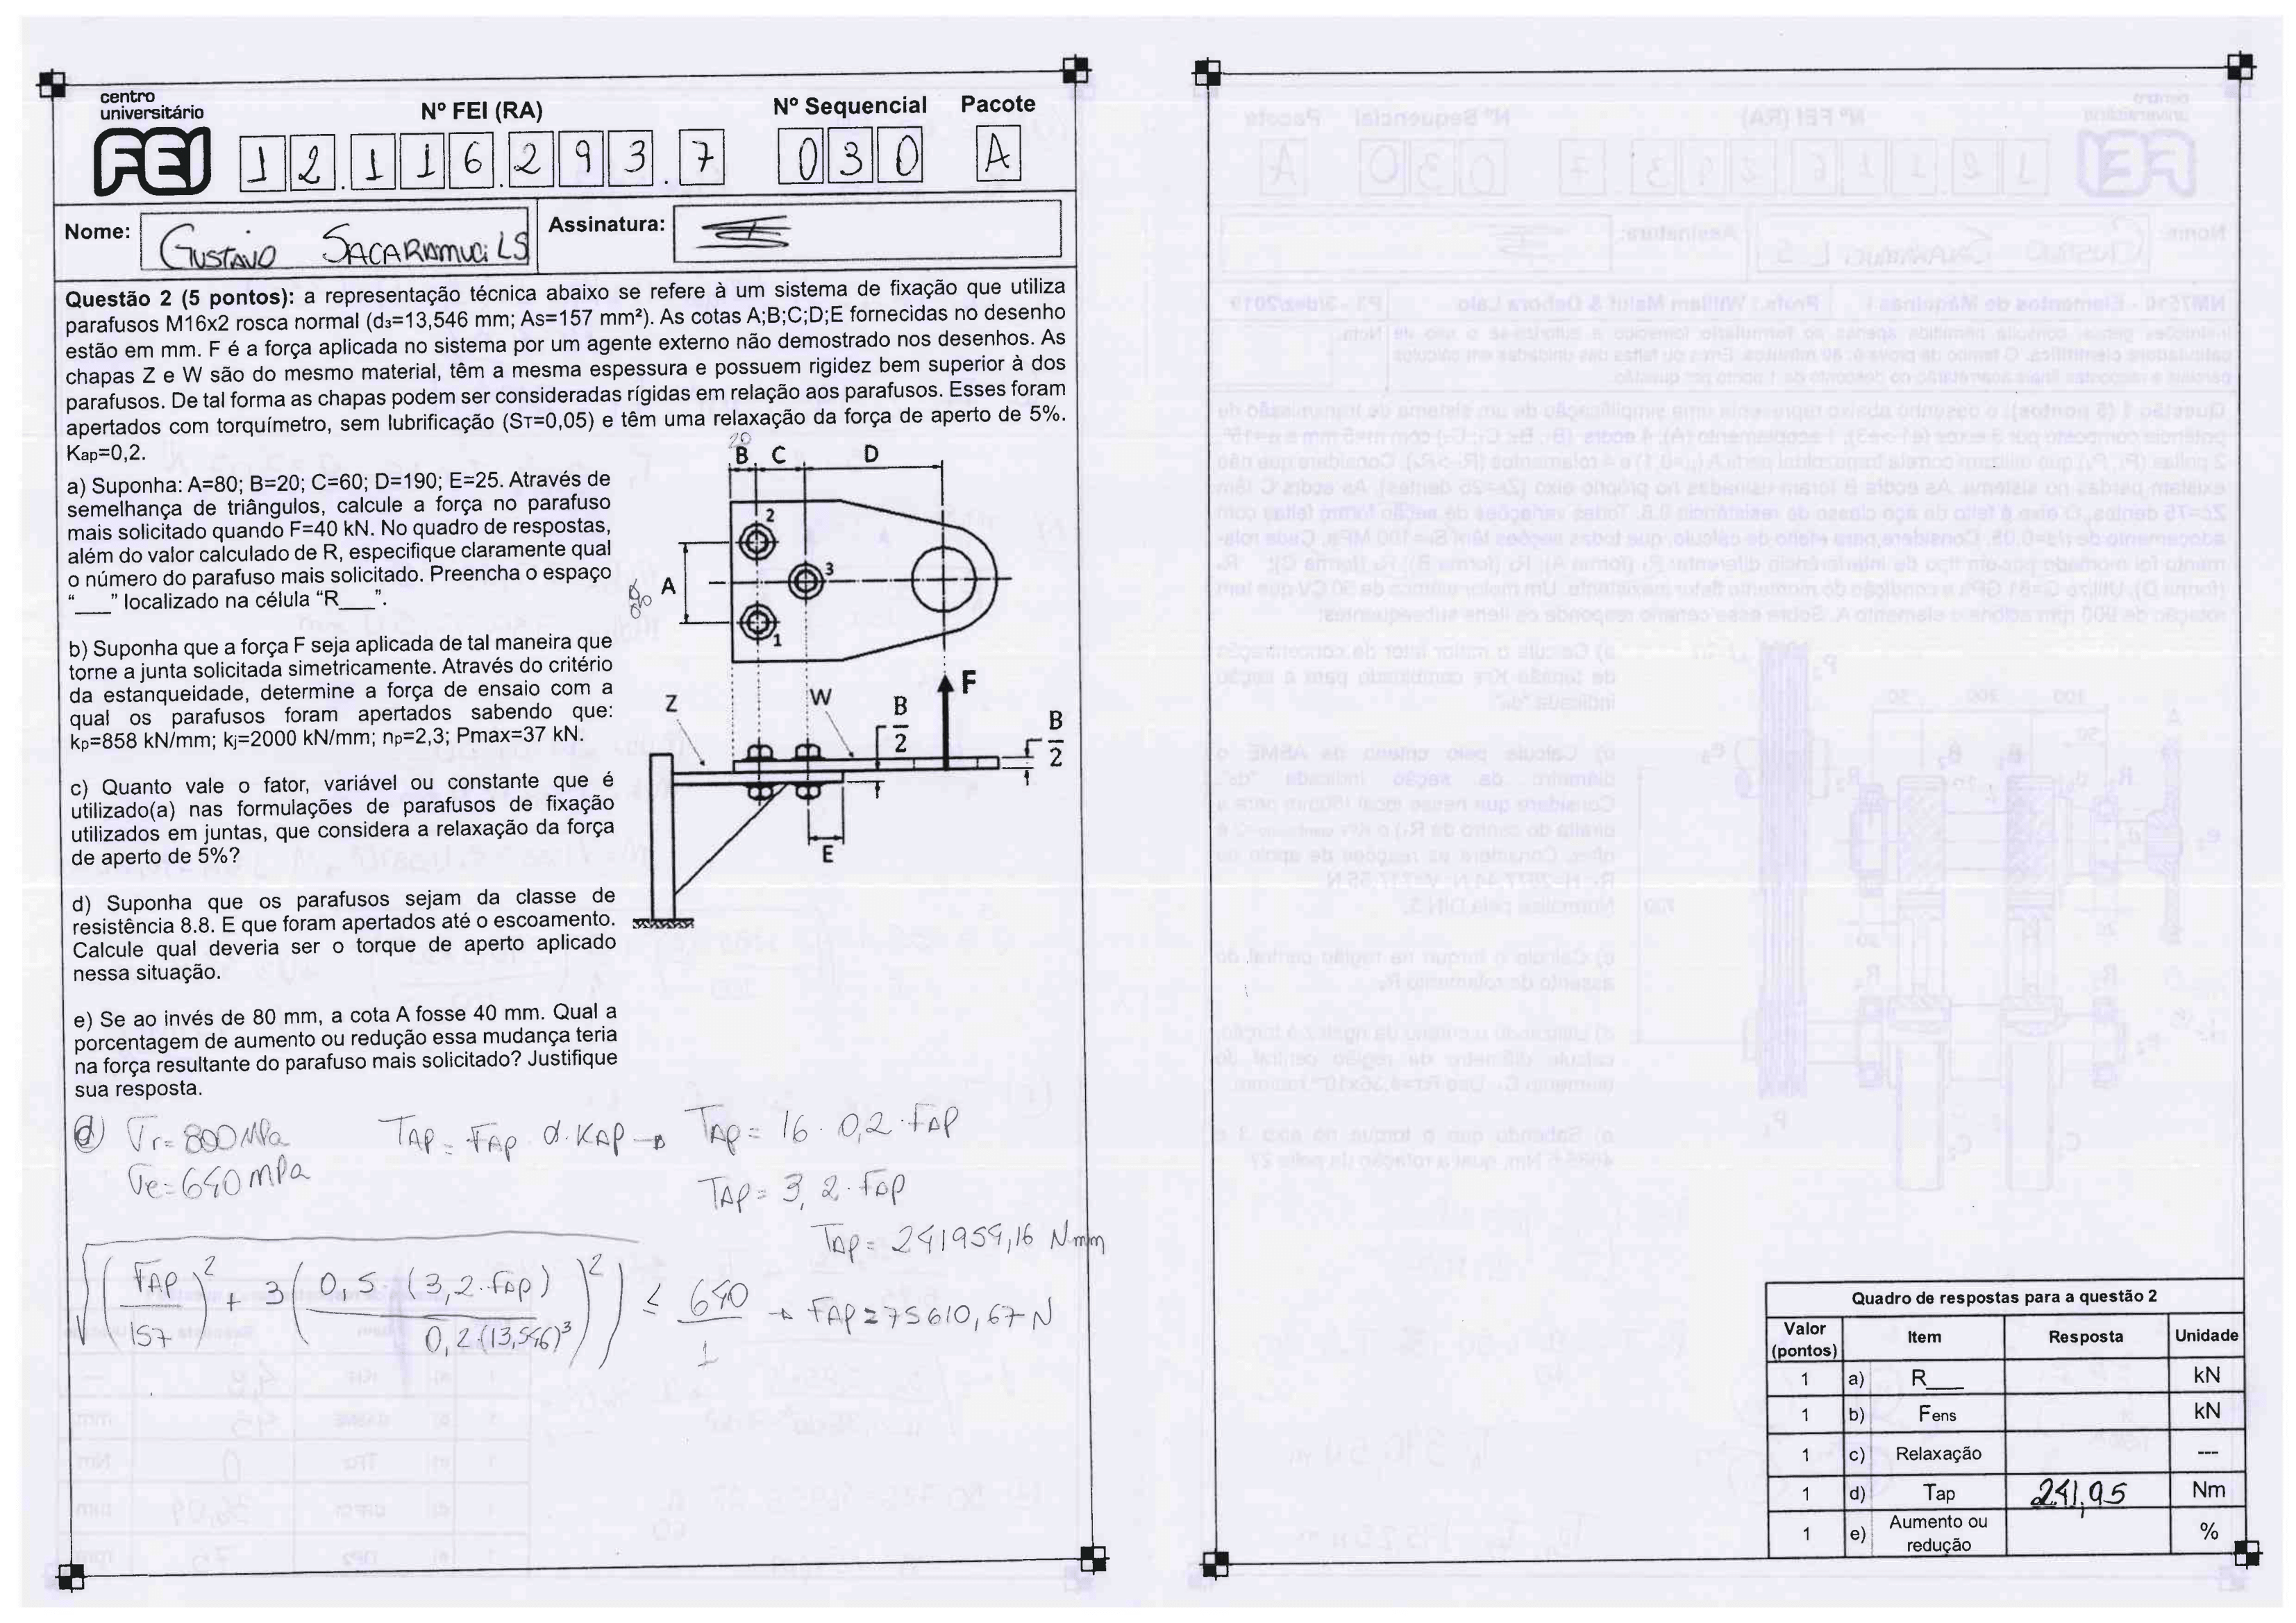 centro
universitário
FEI
Nº FEI (RA)
Nº Sequencial
Pacote
1 2 . 1 1 6 . 2 9 3 . 7
0 3 0
A
Nome: GUSTAVO SACARAMUCI LS
Assinatura:
Questão 2 (5 pontos): a representação técnica abaixo se refere à um sistema de fixação que utiliza
parafusos M16x2 rosca normal (d₃=13,546 mm; As=157 mm²). As cotas A;B;C;D;E fornecidas no desenho
estão em mm. F é a força aplicada no sistema por um agente externo não demostrado nos desenhos. As
chapas Z e W são do mesmo material, têm a mesma espessura e possuem rigidez bem superior à dos
parafusos. De tal forma as chapas podem ser consideradas rígidas em relação aos parafusos. Esses foram
apertados com torquímetro, sem lubrificação (Sᴛ=0,05) e têm uma relaxação da força de aperto de 5%.
Kap=0,2.
a) Suponha: A=80; B=20; C=60; D=190; E=25. Através de
semelhança de triângulos, calcule a força no parafuso
mais solicitado quando F=40 kN. No quadro de respostas,
além do valor calculado de R, especifique claramente qual
o número do parafuso mais solicitado. Preencha o espaço
“___” localizado na célula “R___”.
b) Suponha que a força F seja aplicada de tal maneira que
torne a junta solicitada simetricamente. Através do critério
da estanqueidade, determine a força de ensaio com a
qual os parafusos foram apertados sabendo que:
kp=858 kN/mm; kj=2000 kN/mm; np=2,3; Pmax=37 kN.
c) Quanto vale o fator, variável ou constante que é
utilizado(a) nas formulações de parafusos de fixação
utilizados em juntas, que considera a relaxação da força
de aperto de 5%?
d) Suponha que os parafusos sejam da classe de
resistência 8.8. E que foram apertados até o escoamento.
Calcule qual deveria ser o torque de aperto aplicado
nessa situação.
e) Se ao invés de 80 mm, a cota A fosse 40 mm. Qual a
porcentagem de aumento ou redução essa mudança teria
na força resultante do parafuso mais solicitado? Justifique
sua resposta.
20
B C D
2
3
80
A
1
F
Z
W
B
2
B
2
E
d) σr=800MPa
σe=640mPa
TAP = FAP . d . KAP → TAP = 16 . 0,2 . FAP
TAP = 3,2 . FAP
TAP = 241954,16 Nmm
√((FAP/157)² + 3(0,5 . (3,2 . FAP)/0,2.(13,546)³)²) ≤ 640/1 → FAP = 75610,67 N
Quadro de respostas para a questão 2
Valor (pontos) Item Resposta Unidade
1 a) R___ kN
1 b) Fens kN
1 c) Relaxação ---
1 d) Tap 241,95 Nm
1 e) Aumento ou redução %